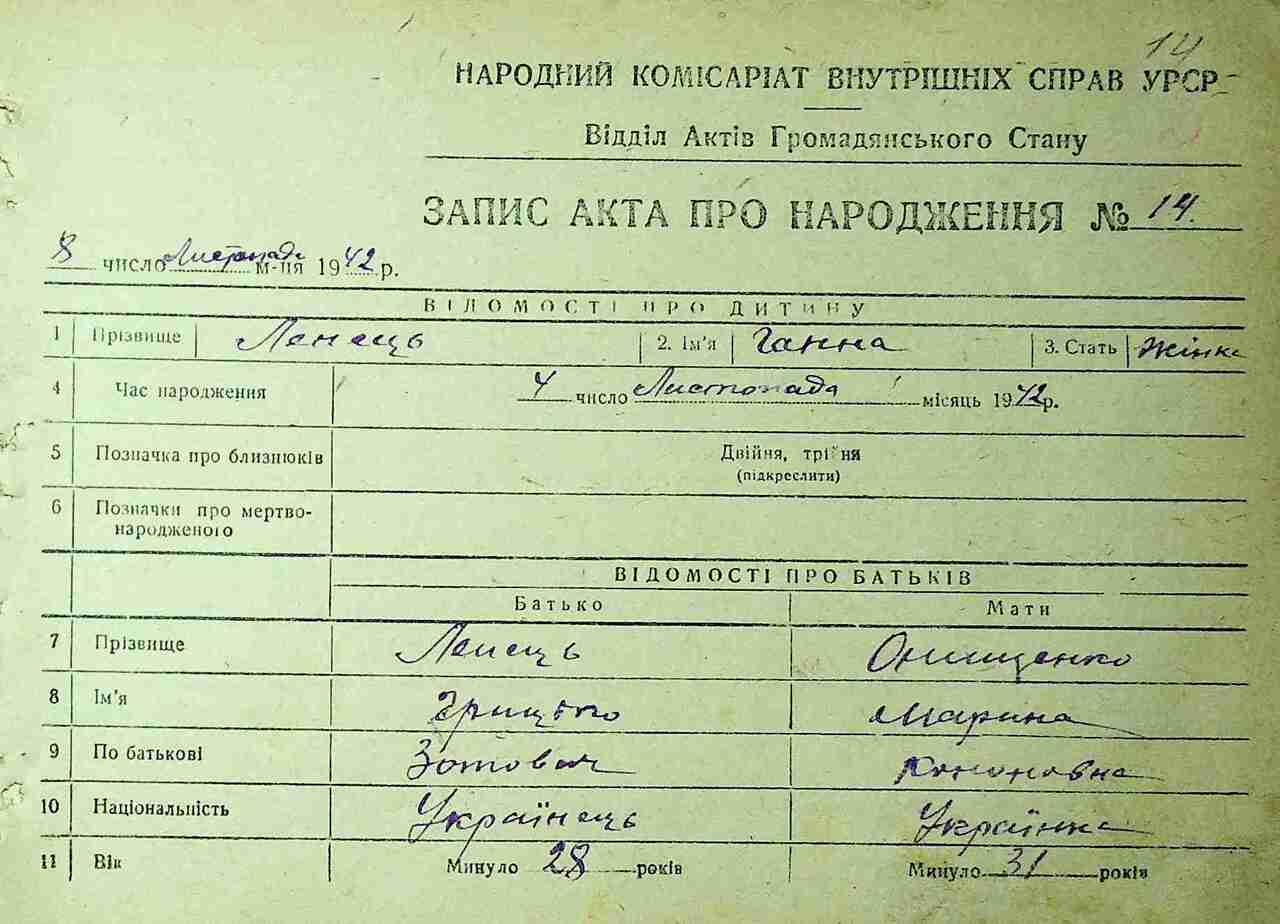 14
НАРОДНИЙ КОМІСАРІАТ ВНУТРІШНІХ СПРАВ УРСР
Відділ Актів Громадянського Стану
ЗАПИС АКТА ПРО НАРОДЖЕННЯ № 14.
8 число Листопада м-ця 1942 р.
ВІДОМОСТІ ПРО ДИТИНУ
1 Прізвище Ленець 2. Ім'я Ганна 3. Стать Жінка
4 Час народження 4 число Листопада місяць 1942 р.
5 Позначка про близнюків Двійня, трійня
(підкреслити)
6 Позначки про мертво-
народженого
ВІДОМОСТІ ПРО БАТЬКІВ
Батько Мати
7 Прізвище Ленець Онищенко
8 Ім'я Грицько Марина
9 По батькові Зотович Кононовна
10 Національність Українець Українка
11 Вік Минуло 28 років Минуло 31 років